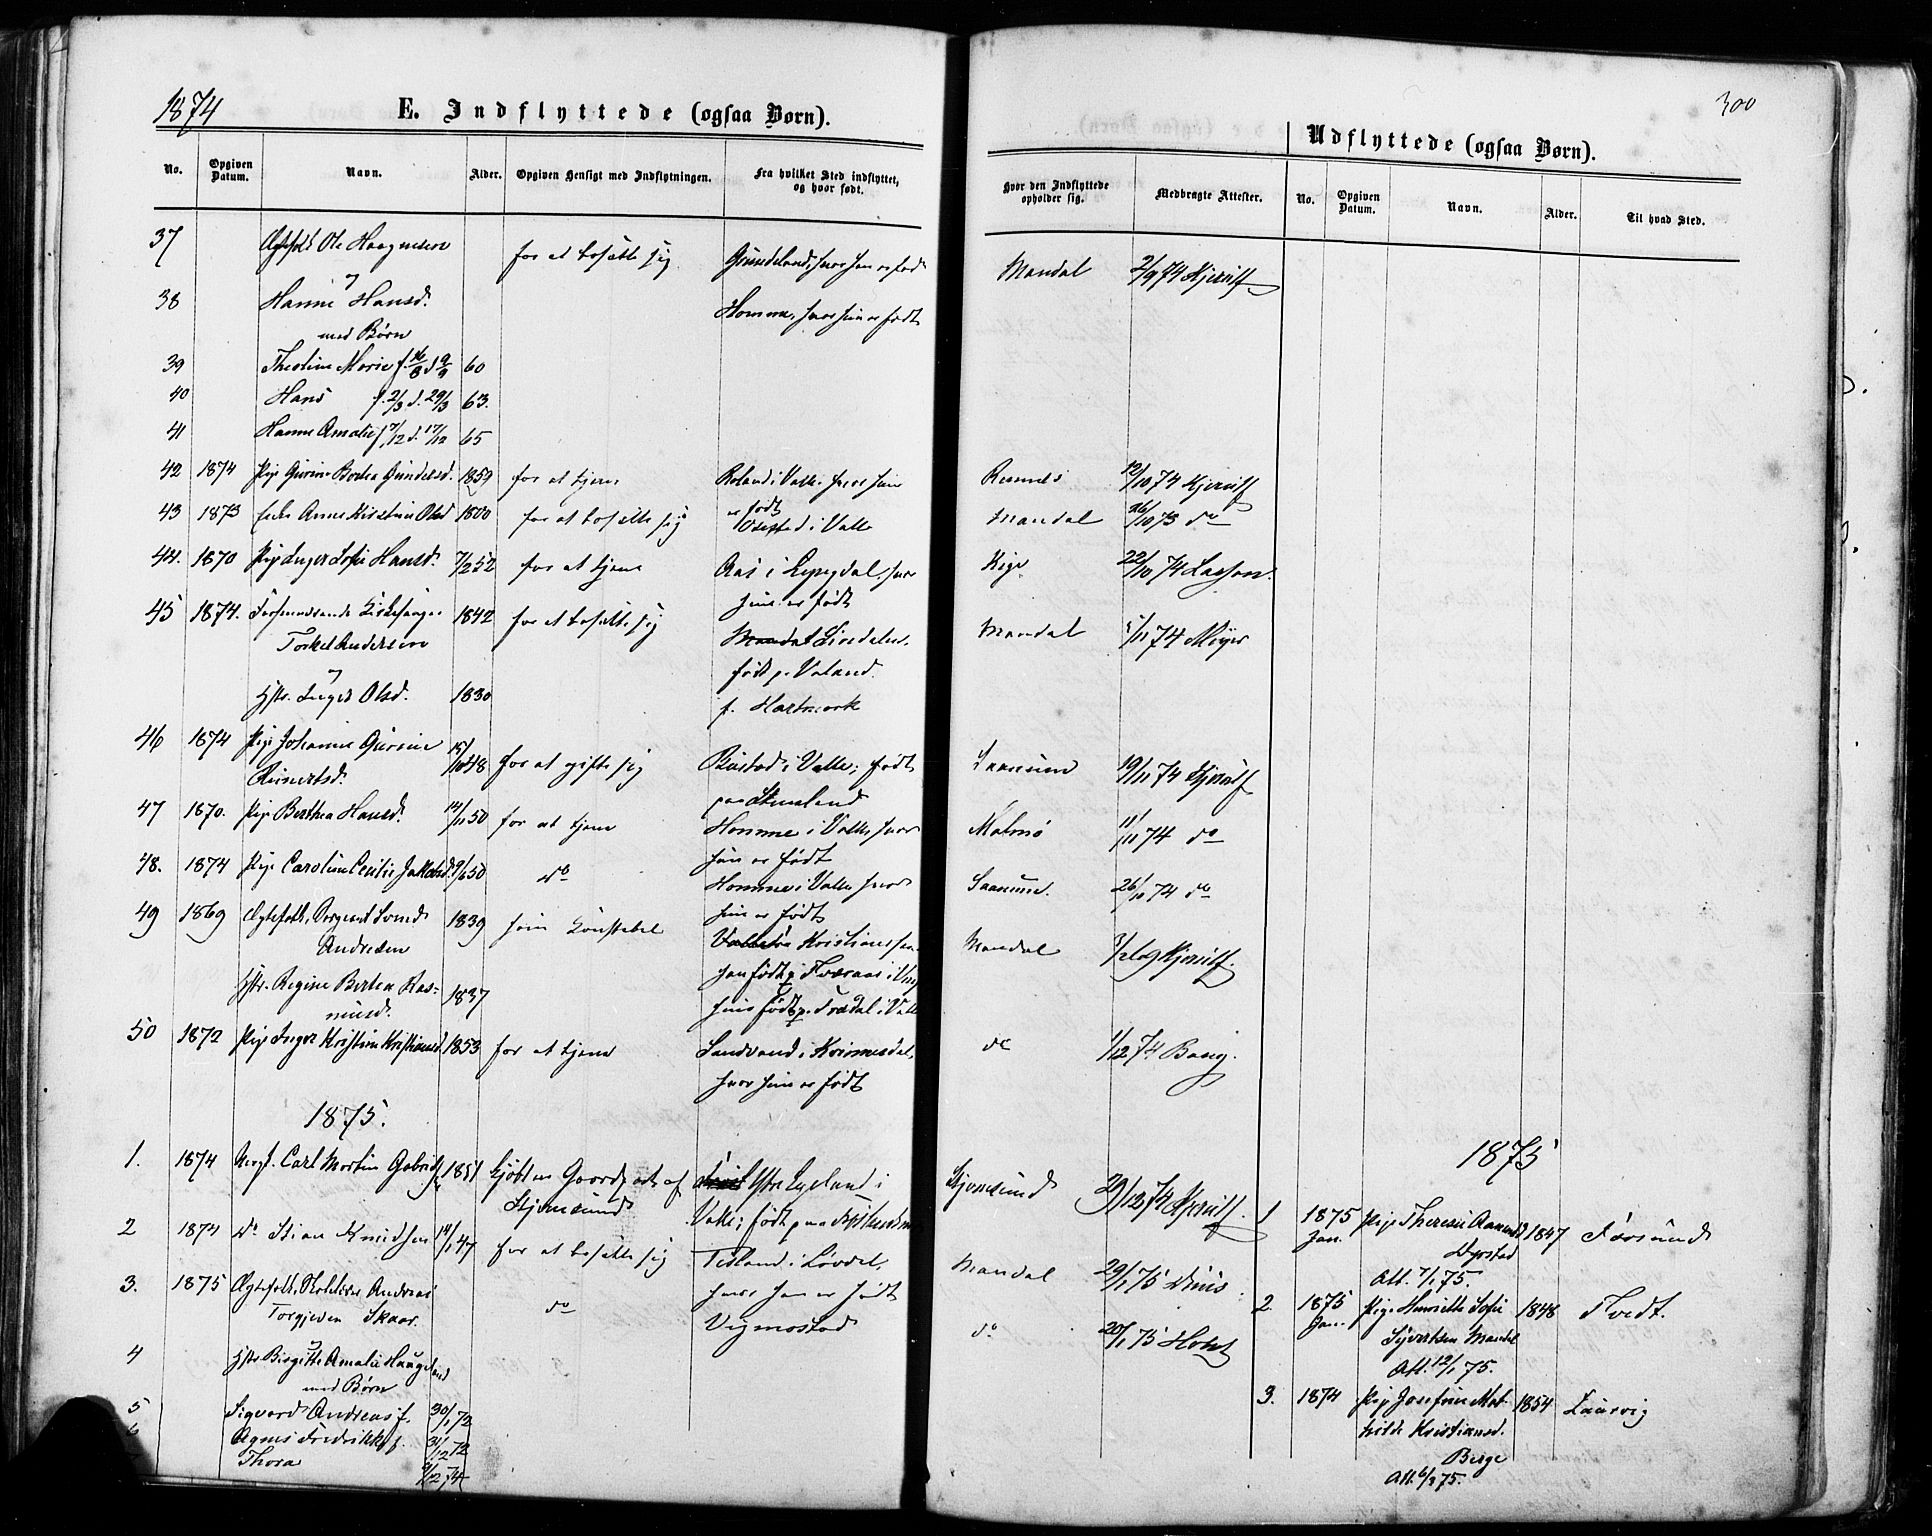 1874
E. Indflyttede (ogsaa Børn).
No. Opgiven Datum. Navn. Alder. Opgiven Hensigt med Indflytningen. Fra hvilket Sted indflyttet, og hvor født.
37 Ægtefolk Ole Haagensen for at bosætte sig Grundeland, hvor han er født
&
38 Hanne Hansd. Homme, hvor hun er født
med Børn
39 Theoline Marie f. 16/8 d 9/9 60
40 Hans f. 2/3 d. 29/3 63.
41 Hanne Amalie f 7/12 d. 17/12 65
42 1874 Pige Gurine Bertea Gundersd. 1859 for at tjene Roland i Valle hvor hun
er født
43 1873 Enke Anne Kirstine Olsd 1800 for at bosætte sig Valle
44. 1870 Pige Inger Sofie Hansd. 7/2 52 for at tjene Aas i hvor
hun er født
45 1874. Kirkesanger 1842 for at bosætte sig
Torkel Andersen født p. Valand.
&
Hstr. Inger Olsd. 1830 f. Hartmark
46 1874 Pige Johanne Gurine 15/10 48 for at gifte sig i Valle, født
Reinertsd. paa Stuseland
47 1870. Pige Berthea Hansd. 14/11 50 for at tjene Homme i Valle hvor
hun er født
48. 1874 Pige Caroline Cecilie Jakobsd. 9/6 50 do Homme i Valle hvor
hun er født
49 1869 Ægtefolk, Sergeant Svend 1839 som Konstabel
Andresen
Hstr. Regine Bertea Ras- 1837
musd. hun født p. Trædal i Valle
50 1872 Pige Inger Kristine Kristiansd. 1853 for at tjene Sandvand i
hvor hun er født
1875.
1. 1874 Ungk. Carl Martin Gabriels. 1851 kjøbt en Gaardpart af Ytre Egeland i
Skjernsund Valle; født paa
2 1874 Do Stian Knudsen 14/1 47 for at bosætte sig Tisland i Løvdal,
hvor han er født
3. 1875 Ægtefolk, Skolelærer Andreas do
Torgjersen Skaar. Vigmostad
&
4 Hstr Birgitte Amalie Haugeland
med Børn
5 Sigvard Andreas f. 30/1 72
6 Agnes Fredrikke f. 31/12 72
Thora 9/12 74
300
Udflyttede (ogsaa Børn).
Hvor den Indflyttede opholder sig. Medbragte Attester. No. Opgiven Datum. Navn. Alder. Til hvad Sted.
Mandal 2/9 74 Kjerulf
12/10 74 Kjerulf
Mandal 26/10 73 do
Kige 22/10 74 Lassen.
Mandal 5/11 74 Meyer
Saanum 19/11 74 Kjerulf
Malmø 11/11 74 do
Saanum. 26/10 74 do
Mandal Kjerulf.
do 1/12 74 Bang.
1875
Skjernsund 29/12 74 Kjerulf.
1 1875 Jan. Pige Therese Aanensd 1847 Farsund
Dyrstad
Att. 7/1 75.
Mandal 29/1 75
2 1875 Jan. Pige Henriette Sofie 1848 Tvedt.
Syvertsen Mandal
Att. 12/1 75.
do 20/1 75 Holst
3. 1874 Pige Josefine Mat- 1854 Laurvig
hilde Kristiansd.
Berge
Att. 6/3 75.